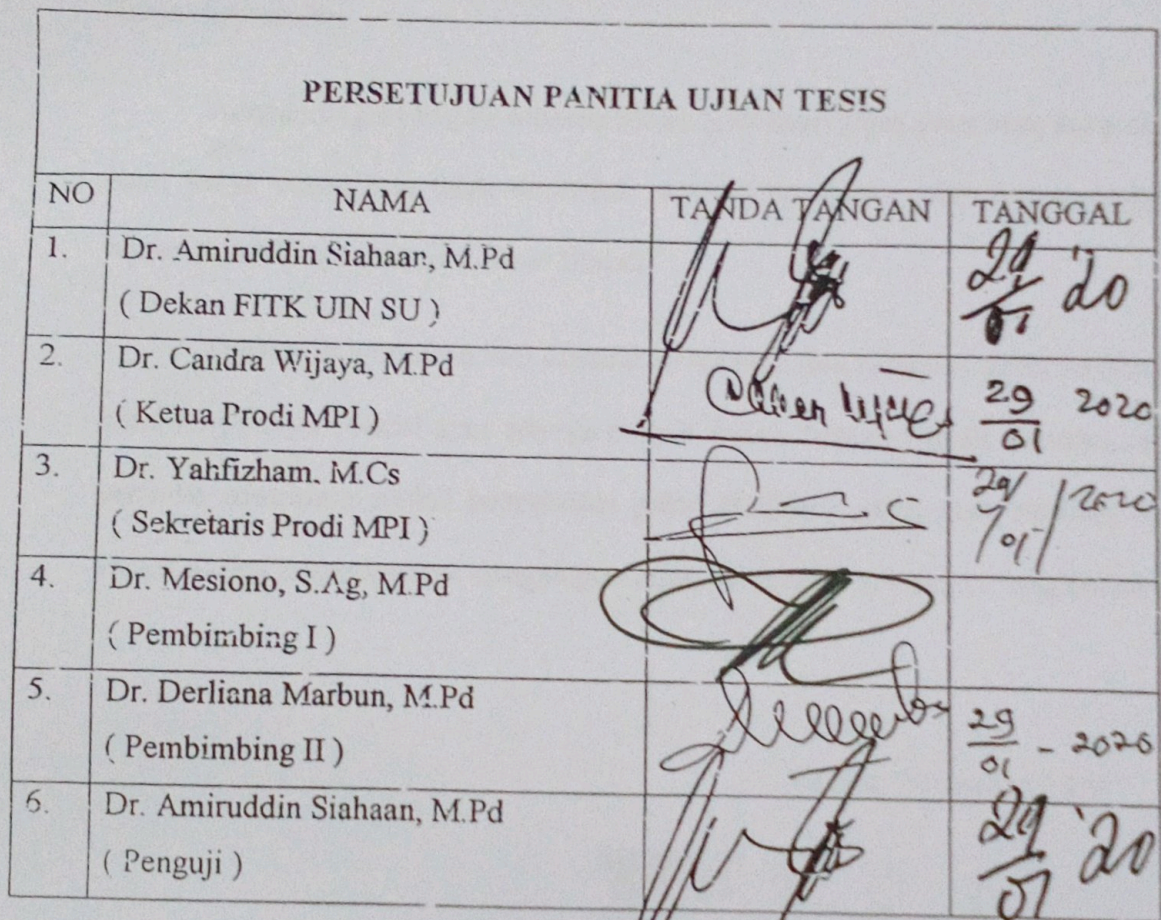 PERSETUJUAN PANITIA UJIAN TESIS
NO NAMA TANDA TANGAN TANGGAL
1. Dr. Amiruddin Siahaan, M.Pd
( Dekan FITK UIN SU )
29/01 '20
2. Dr. Candra Wijaya, M.Pd
( Ketua Prodi MPI )
29/01 2020
3. Dr. Yahfizham, M.Cs
( Sekretaris Prodi MPI )
29/01/2020
4. Dr. Mesiono, S.Ag, M.Pd
( Pembimbing I )
5. Dr. Derliana Marbun, M.Pd
( Pembimbing II )
29/01 - 2020
6. Dr. Amiruddin Siahaan, M.Pd
( Penguji )
29/01 '20